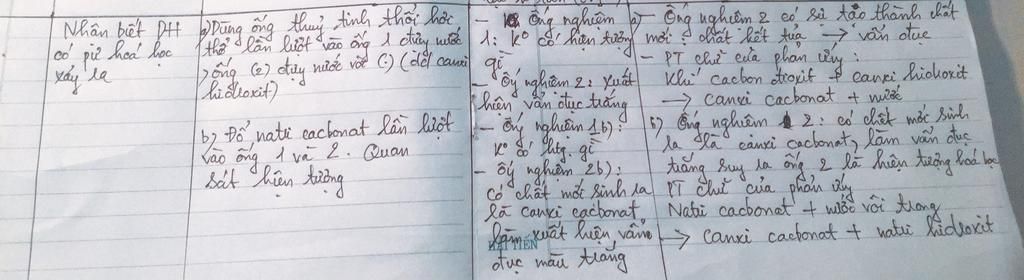 Nhân biết DH
có pứ hoá học
xảy ra
a) Dùng ống thuỷ tinh thổi hơi
thở lần lượt vào ống 1 đựng nước
, ống (2) đựng nước vôi (.) (dd canxi
hiđroxit)
b) Đổ natri cacbonat lần lượt
vào ống 1 và 2. Quan
sát hiện tượng
- Ống nghiệm
1: Ko có hiện tượng
gì
- Ống nghiệm 2: xuất
hiện vẩn đục trắng
- Ống nghiệm 1b):
Ko có htg. gì
- Ống nghiệm 2b):
có chất mới sinh ra
là canxi cacbonat
làm xuất hiện vẩn
đục màu trắng
HẢI TIẾN
a) - Ống nghiệm 2 có sự tạo thành chất
mới: chất kết tủa → vẩn đục
- PT chữ của phản ứng:
Khí cacbon đioxit + canxi hiđroxit
→ canxi cacbonat + nước
b) Ống nghiệm 2: có chất mới sinh
ra là canxi cacbonat, làm vẩn đục
trắng suy ra ống 2 là hiện tượng hoá học
PT chữ của phản ứng
Natri cacbonat + nước vôi trong
→ canxi cacbonat + natri hiđroxit